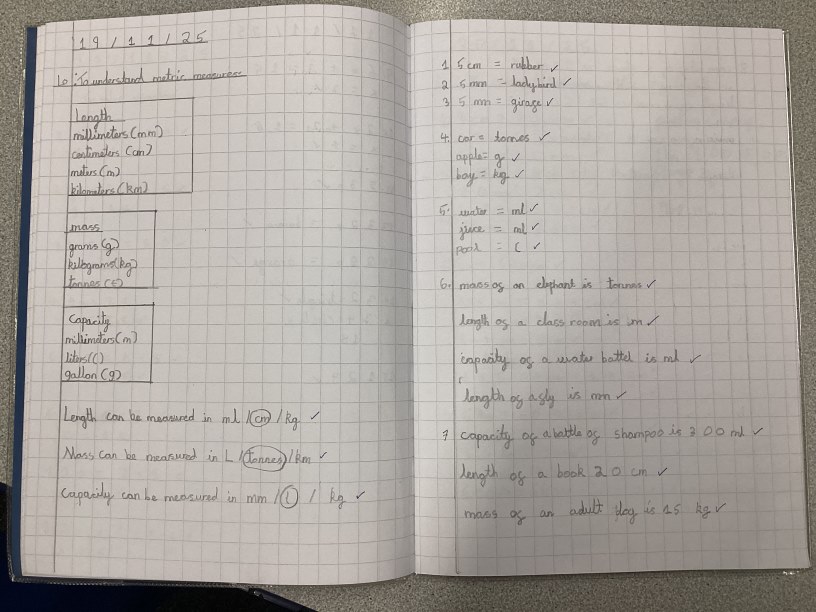 19/11/25
Lo: To understand metric measures
Length
millimeters (mm)
centimeters (cm)
meters (m)
kilometers (km)
mass
grams (g)
kilograms (kg)
tonnes (t)
Capacity
millimeters (m)
liters (l)
gallon (g)
Length can be measured in ml / cm / kg ✓
Mass can be measured in L / tonnes / km ✓
Capacity can be measured in mm / L / kg ✓
1 5 cm = rubber ✓
2 5 mm = ladybird ✓
3 5 mn = girage ✓
4. car = tonnes ✓
apple = g ✓
boy = kg ✓
5. water = ml ✓
juice = ml ✓
pool = l ✓
6. mass og an elephant is tonnes ✓
length og a class room is m ✓
capacity og a water battel is ml ✓
length og a gly is mn ✓
7 capacity og a battle og shampoo is 300 ml ✓
length og a book 20 cm ✓
mass og an adult dog is 15 kg ✓